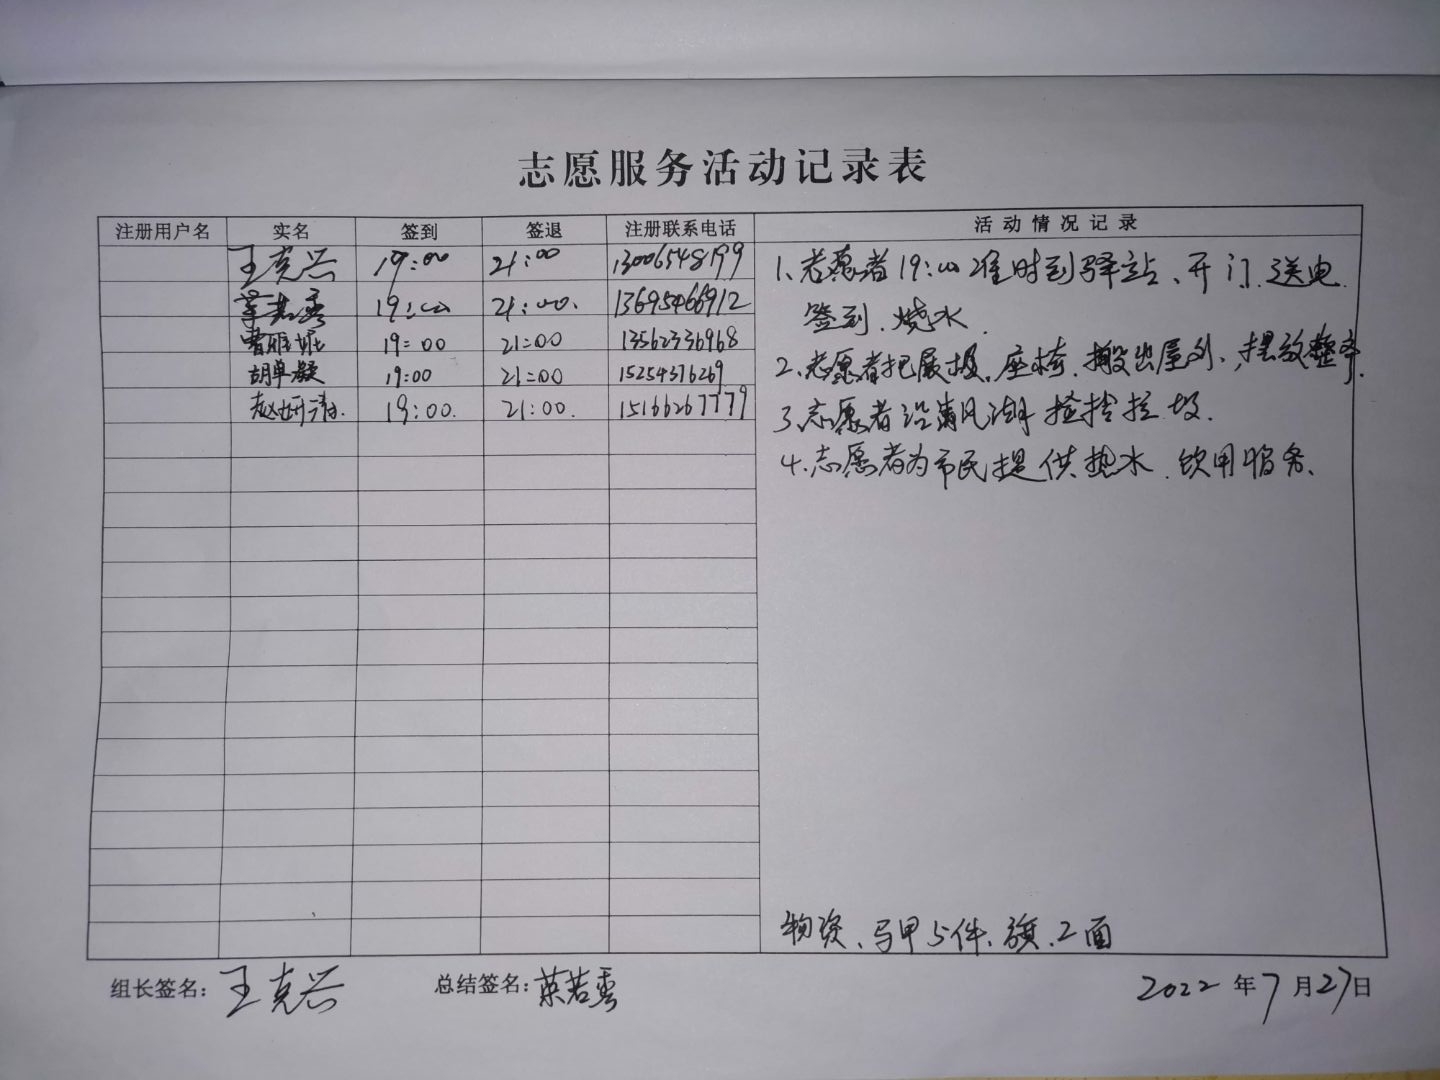 志愿服务活动记录表
注册用户名 实名 签到 签退 注册联系电话 活动情况记录
王克兴 19:00 21:00 13006548199
19:00 21:00. 13695466912
19:00 21:00 13562336968
胡卓凝 19:00 21:00 15254316269
赵妍清. 19:00. 21:00. 15166267779
1、志愿者19:00准时到驿站、开门.送电.
签到.烧水.
2、志愿者把展报.座椅.搬出屋外,摆放整齐.
3、志愿者沿清风湖捡拾垃圾.
4.志愿者为市民提供热水.饮用服务、
物资、马甲5件、旗、2面
组长签名:王克兴 总结签名: 2022年7月27日